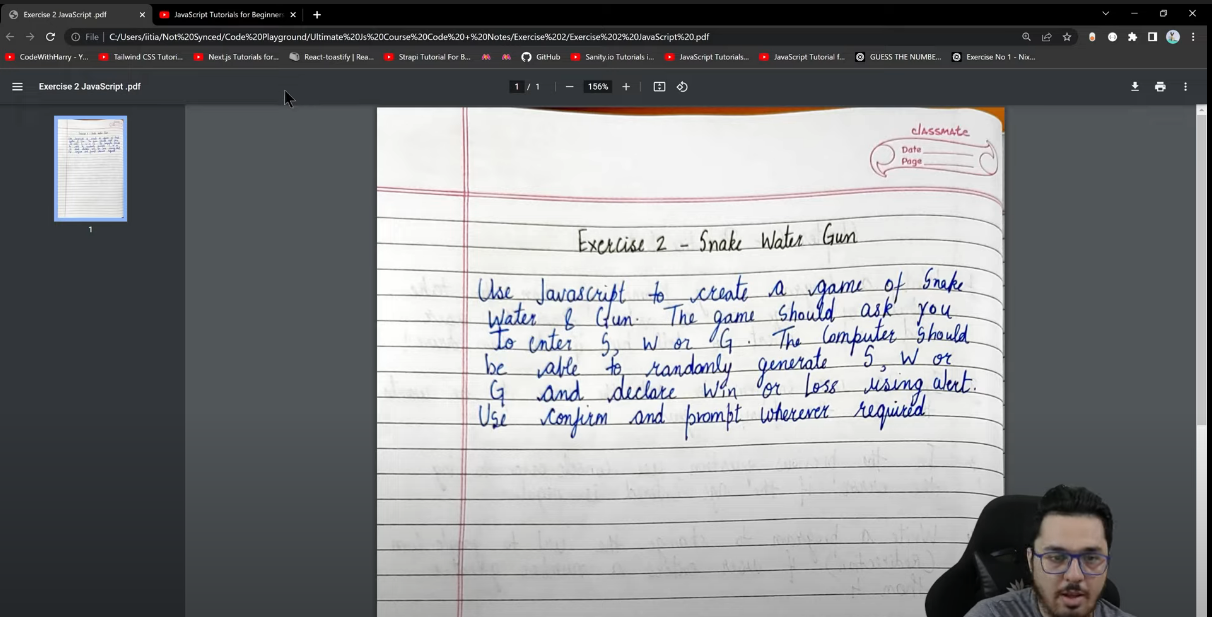 Exercise 2 JavaScript .pdf
JavaScript Tutorials for Beginner
File
C:/Users/iitia/Not%20Synced/Code%20Playground/Ultimate%20Js%20Course%20Code%20+%20Notes/Exercise%202/Exercise%202%20JavaScript%20.pdf
CodeWithHarry - Y...
Tailwind CSS Tutori...
Next.js Tutorials for...
React-toastify | Rea...
Strapi Tutorial For B...
GitHub
Sanity.io Tutorials i...
JavaScript Tutorials...
JavaScript Tutorial f...
GUESS THE NUMBE...
Exercise No 1 - Nix...
Exercise 2 JavaScript .pdf
1 / 1
156%
1
classmate
Date
Page
Exercise 2 - Snake Water Gun
Use Javascript to create a game of Snake
Water & Gun. The game should ask you
to enter S, W or G. The computer should
be able to randomly generate S, W or
G and declare Win or Loss using alert.
Use confirm and prompt wherever required